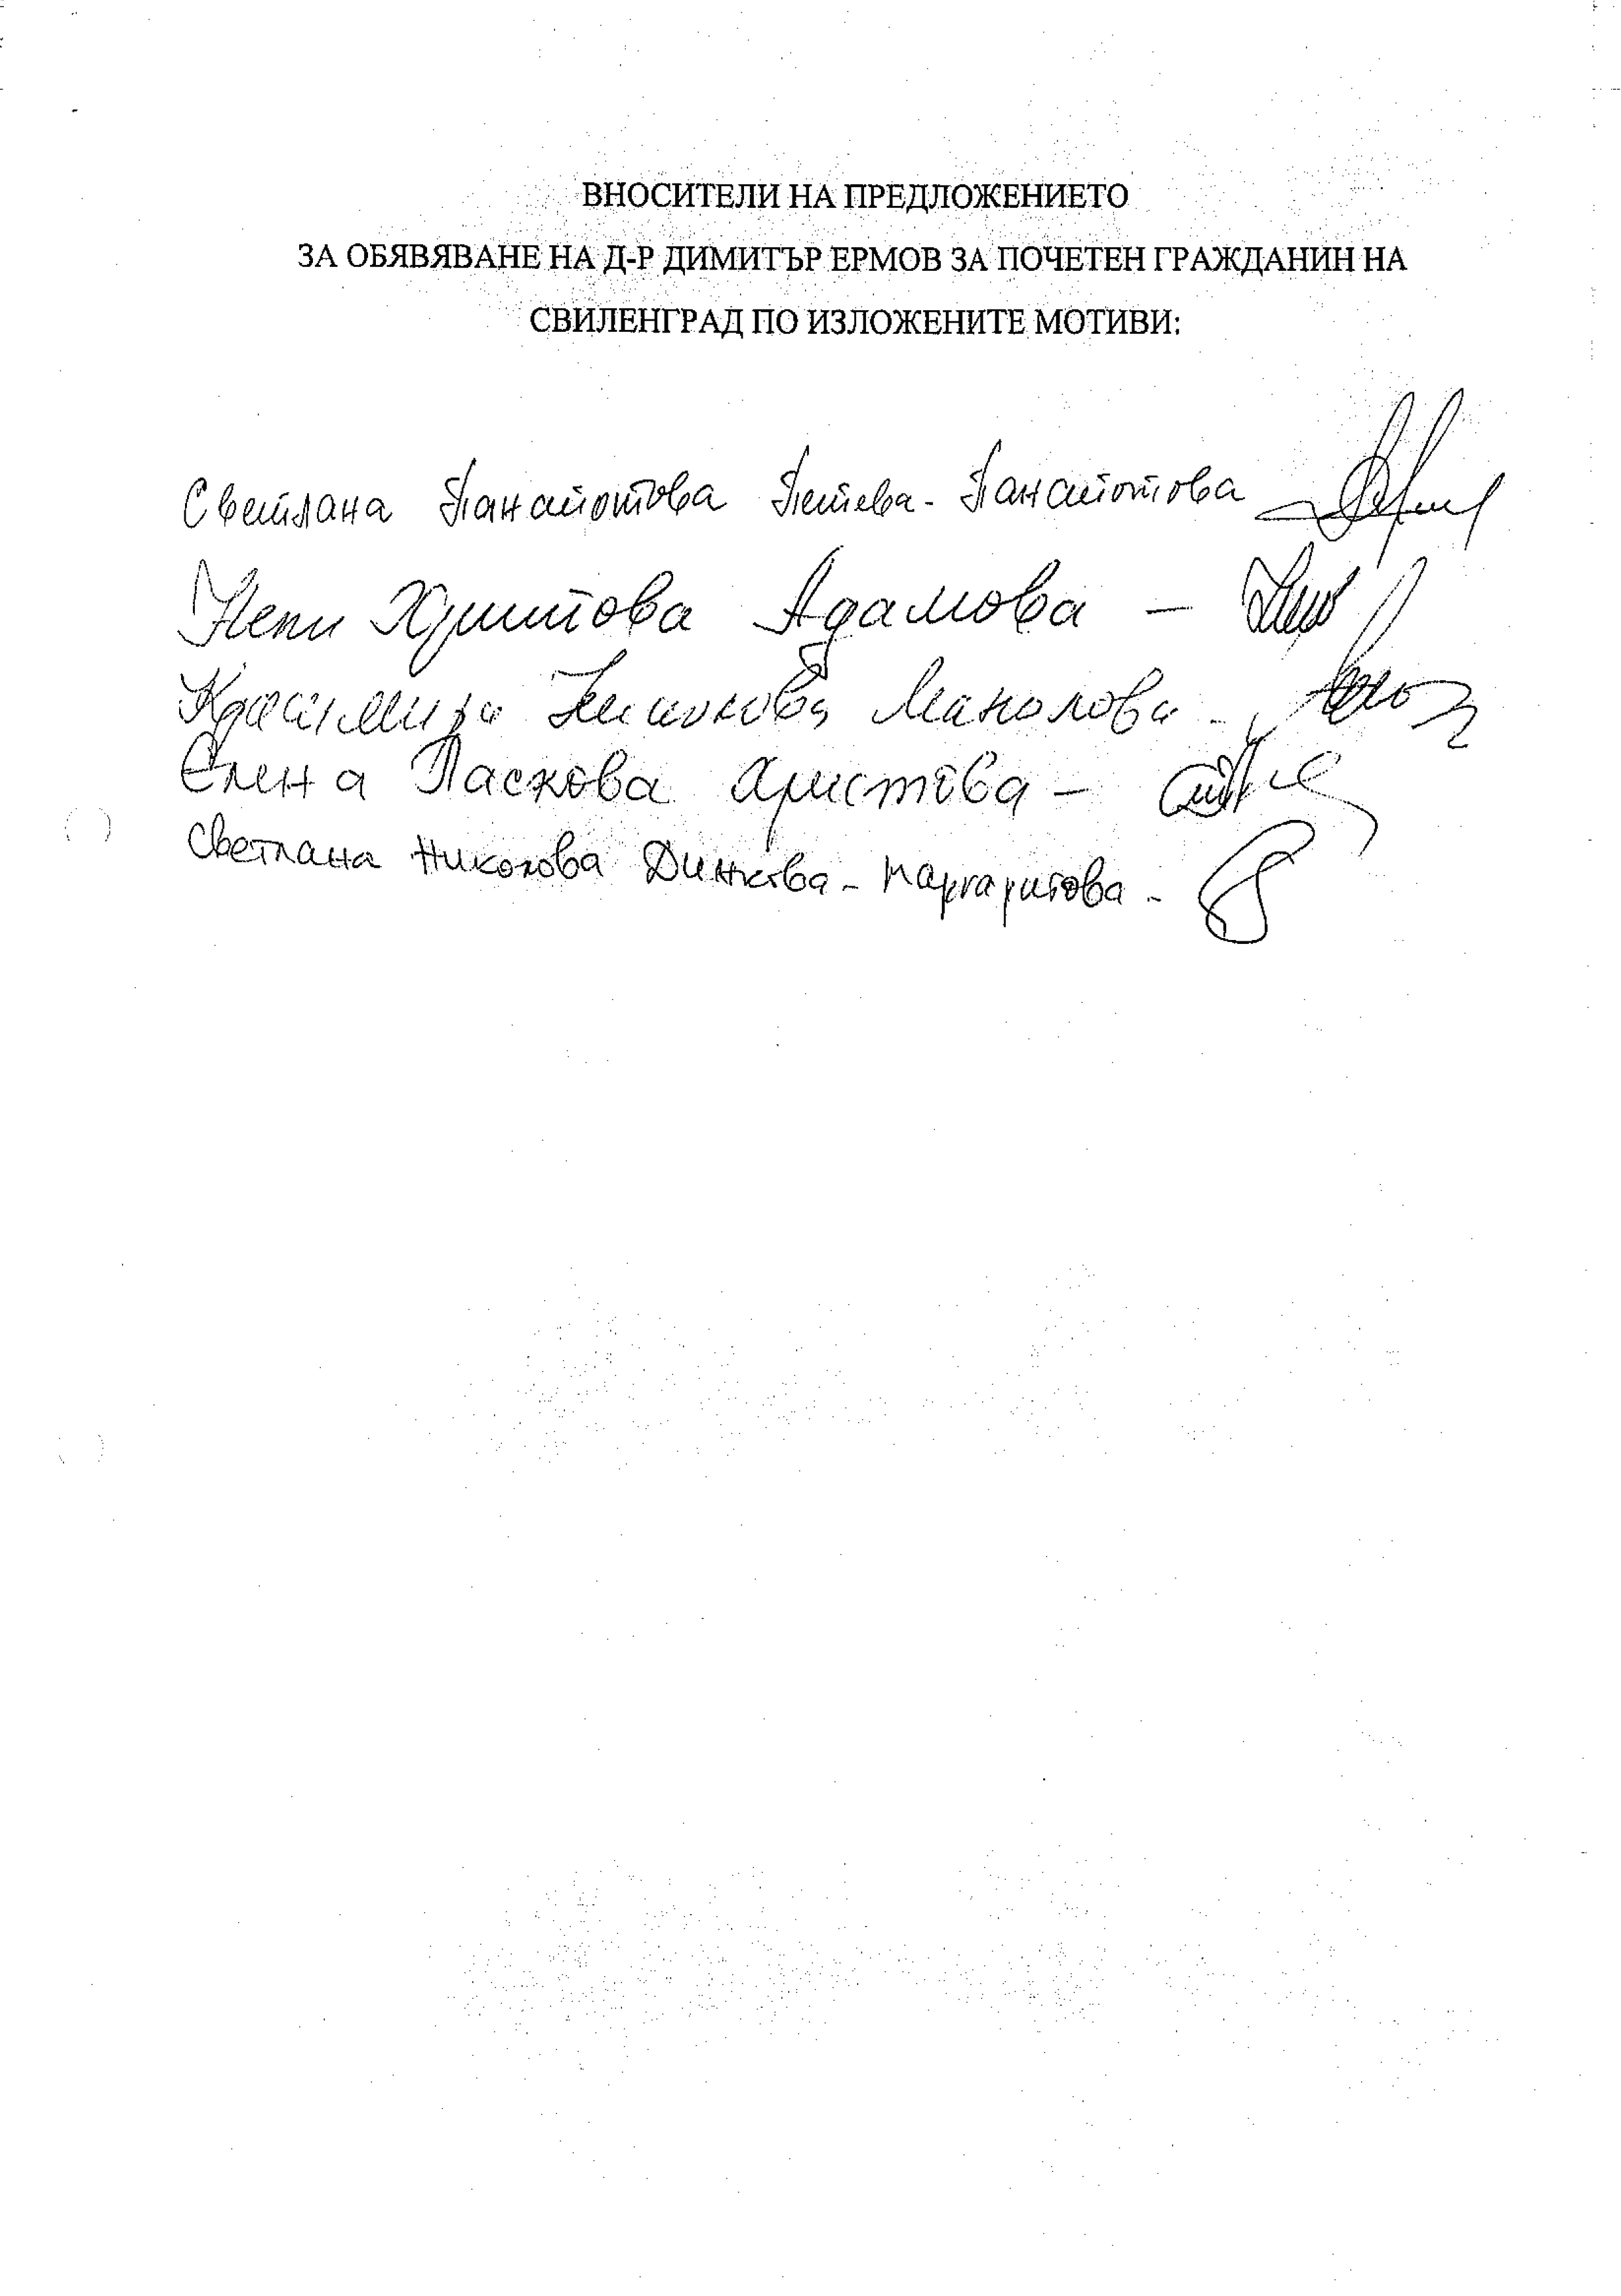 ВНОСИТЕЛИ НА ПРЕДЛОЖЕНИЕТО
ЗА ОБЯВЯВАНЕ НА Д-Р ДИМИТЪР ЕРМОВ ЗА ПОЧЕТЕН ГРАЖДАНИН НА
СВИЛЕНГРАД ПО ИЗЛОЖЕНИТЕ МОТИВИ:
Светлана Панайотова Петева-Панайотова
Христова Адамова -
Красимира Манолова -
Елена Паскова Христова -
Светлана Николова Динкова-Маргаритова -